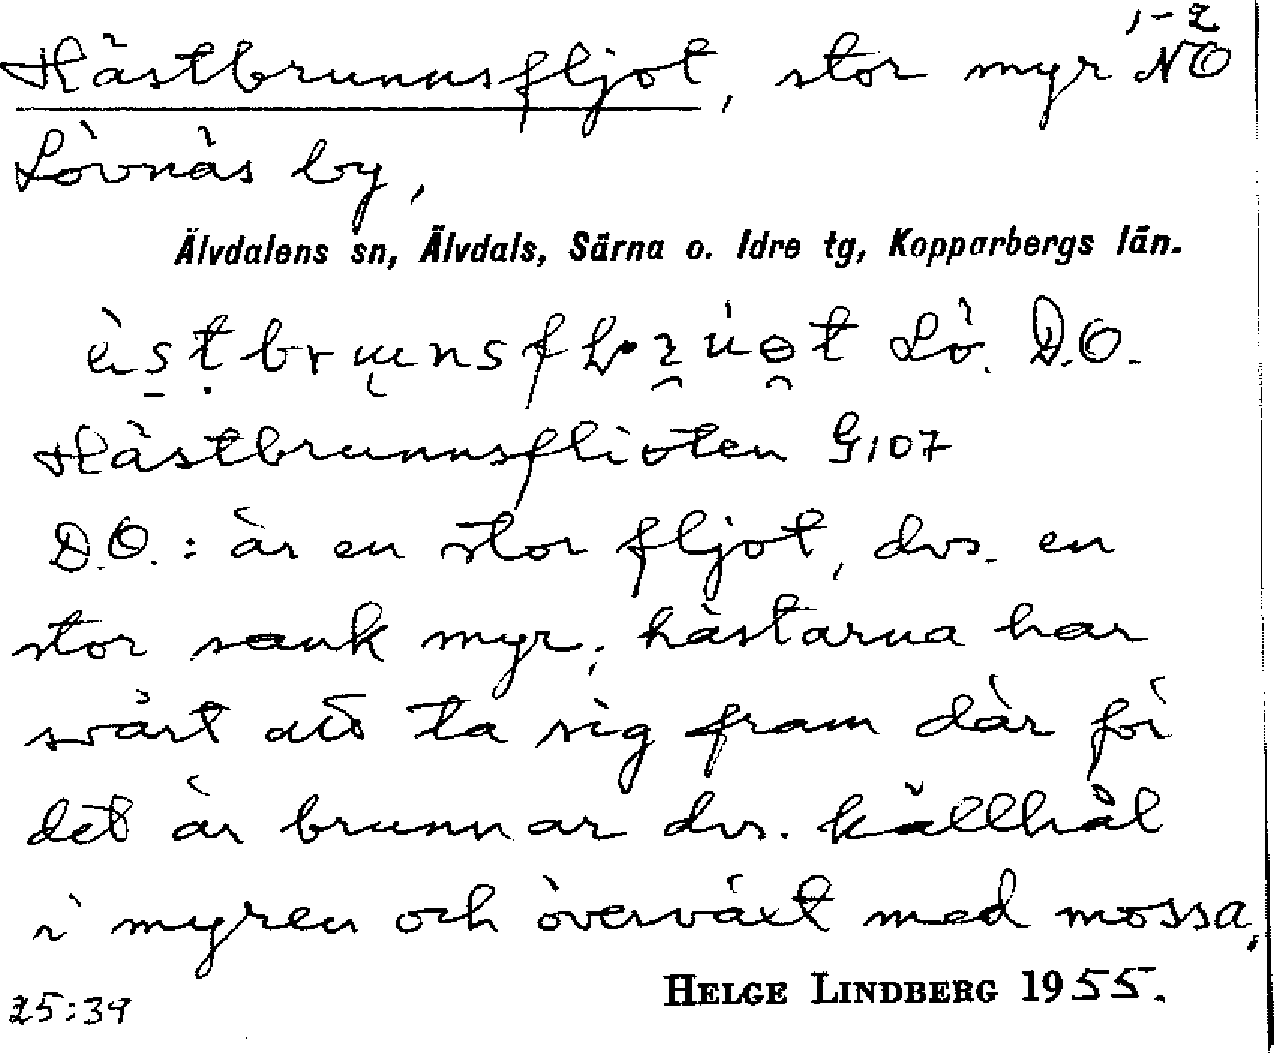 1-2
Hästbrunnsfljot, stor myr NO
Lövnäs by,
Älvdalens sn, Älvdals, Särna o. Idre tg, Kopparbergs län.
Lö. D.O.
Hästbrunnsflioten G107
D.O.: är en stor fljot, dvs. en
stor sank myr; hästarna har
svårt att ta sig fram där för
det är brunnar dvs. källhål
i myren och överväxt med mossa.
25:39 HELGE LINDBERG 1955.